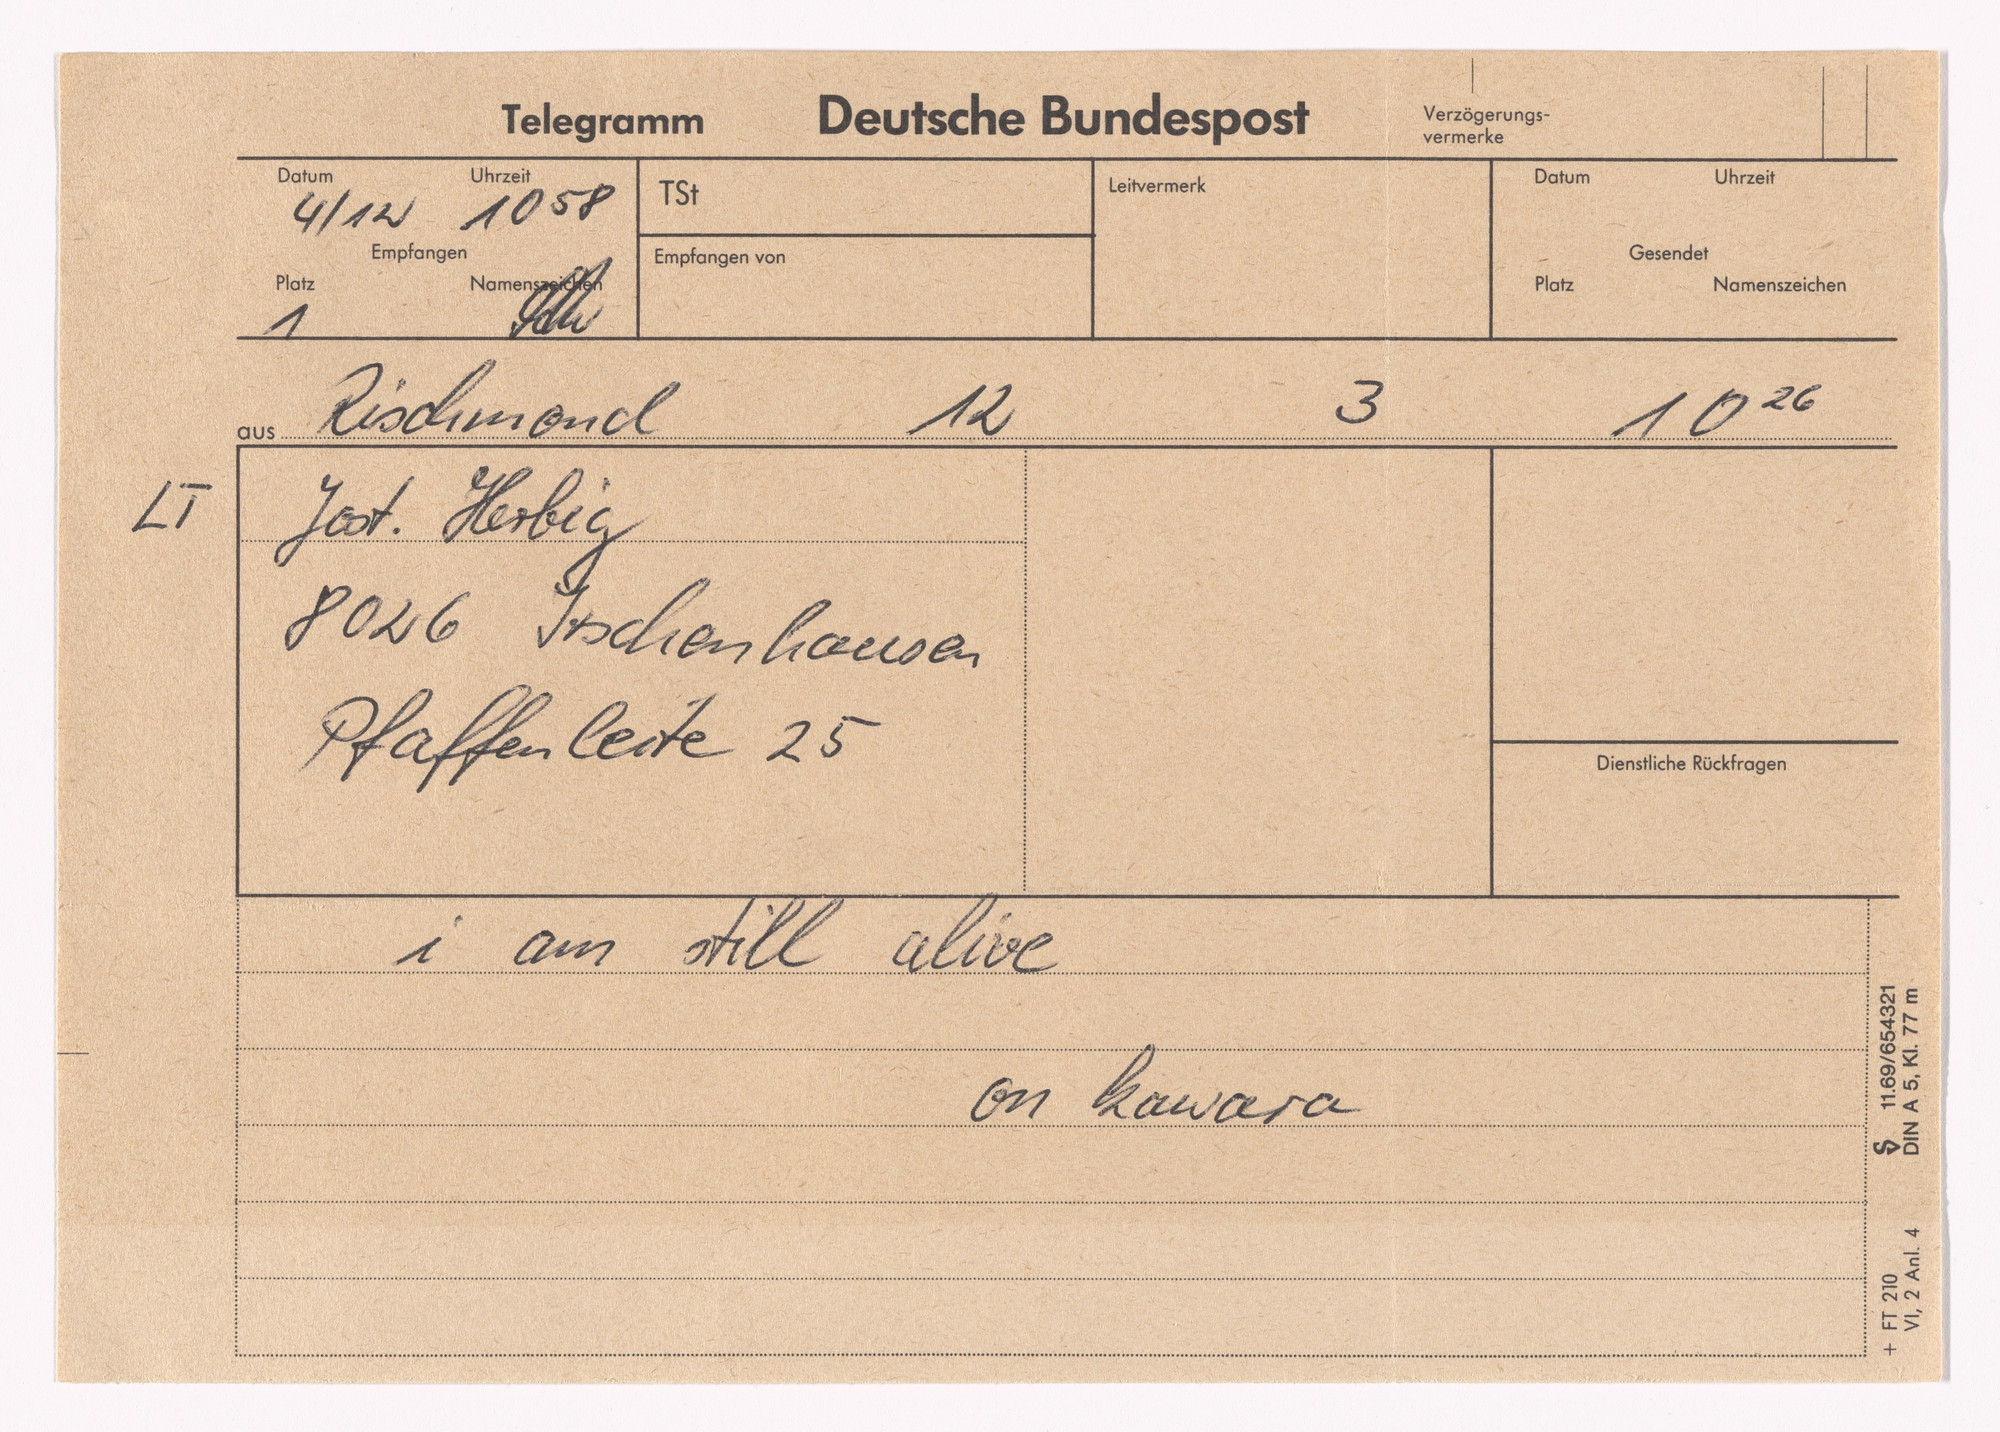 Telegramm Deutsche Bundespost Verzögerungs-
vermerke
Datum Uhrzeit TSt Leitvermerk Datum Uhrzeit
4/12 10 58
Empfangen Empfangen von Gesendet
Platz Namenszeichen Platz Namenszeichen
1
aus Rischmond 12 3 10 26
LT Jost. Herbig
8026 Irschenhausen
Pfaffenleite 25
Dienstliche Rückfragen
i am still alive
on kawara
+ FT 210 11.69/654321
VI, 2 Anl. 4 DIN A 5, Kl. 77 m